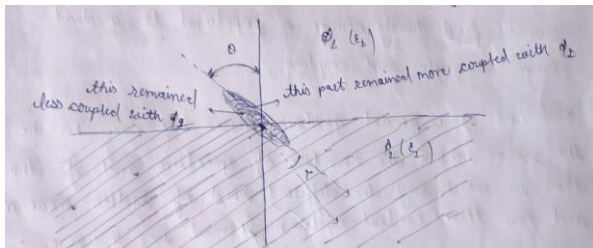 θ
ϕ₁ (ε₁)
this remained
less coupled with ϕ₂
this part remained more coupled with ϕ₁
ϕ₂ (ε₂)
r